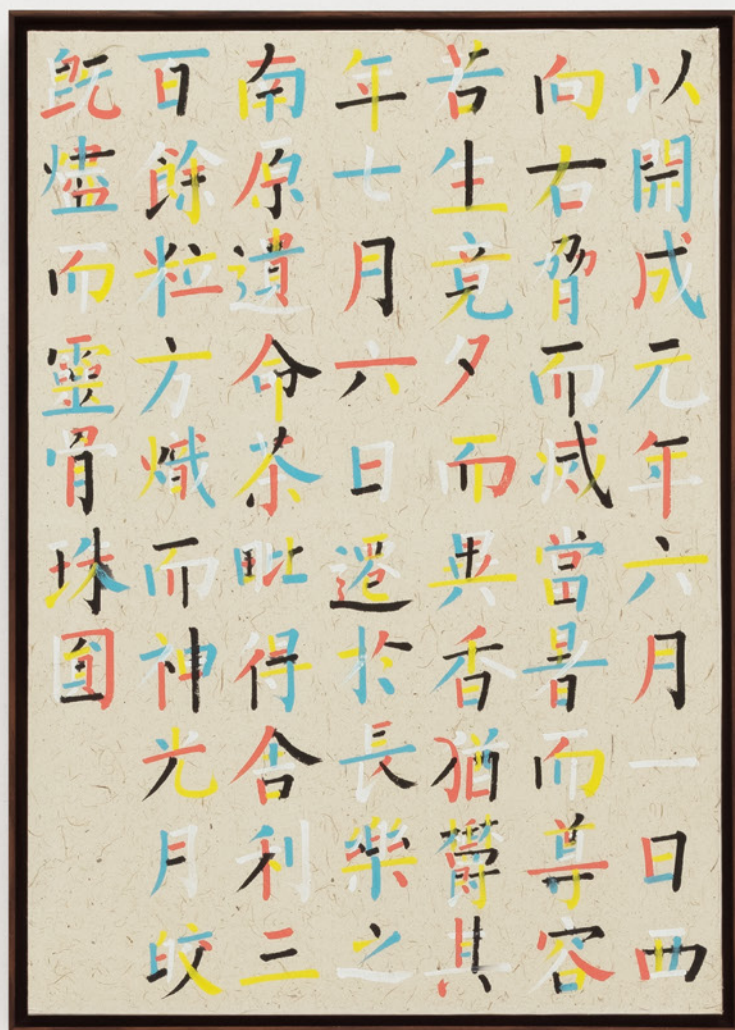 以開成元年六月一日西
向右脅而滅當暑而尊容
若生竟夕而異香猶鬱其
年七月六日遷於長樂之
南原遺命茶毗得舍利三
百餘粒方熾而神光月皎
既燼而靈骨珠圓